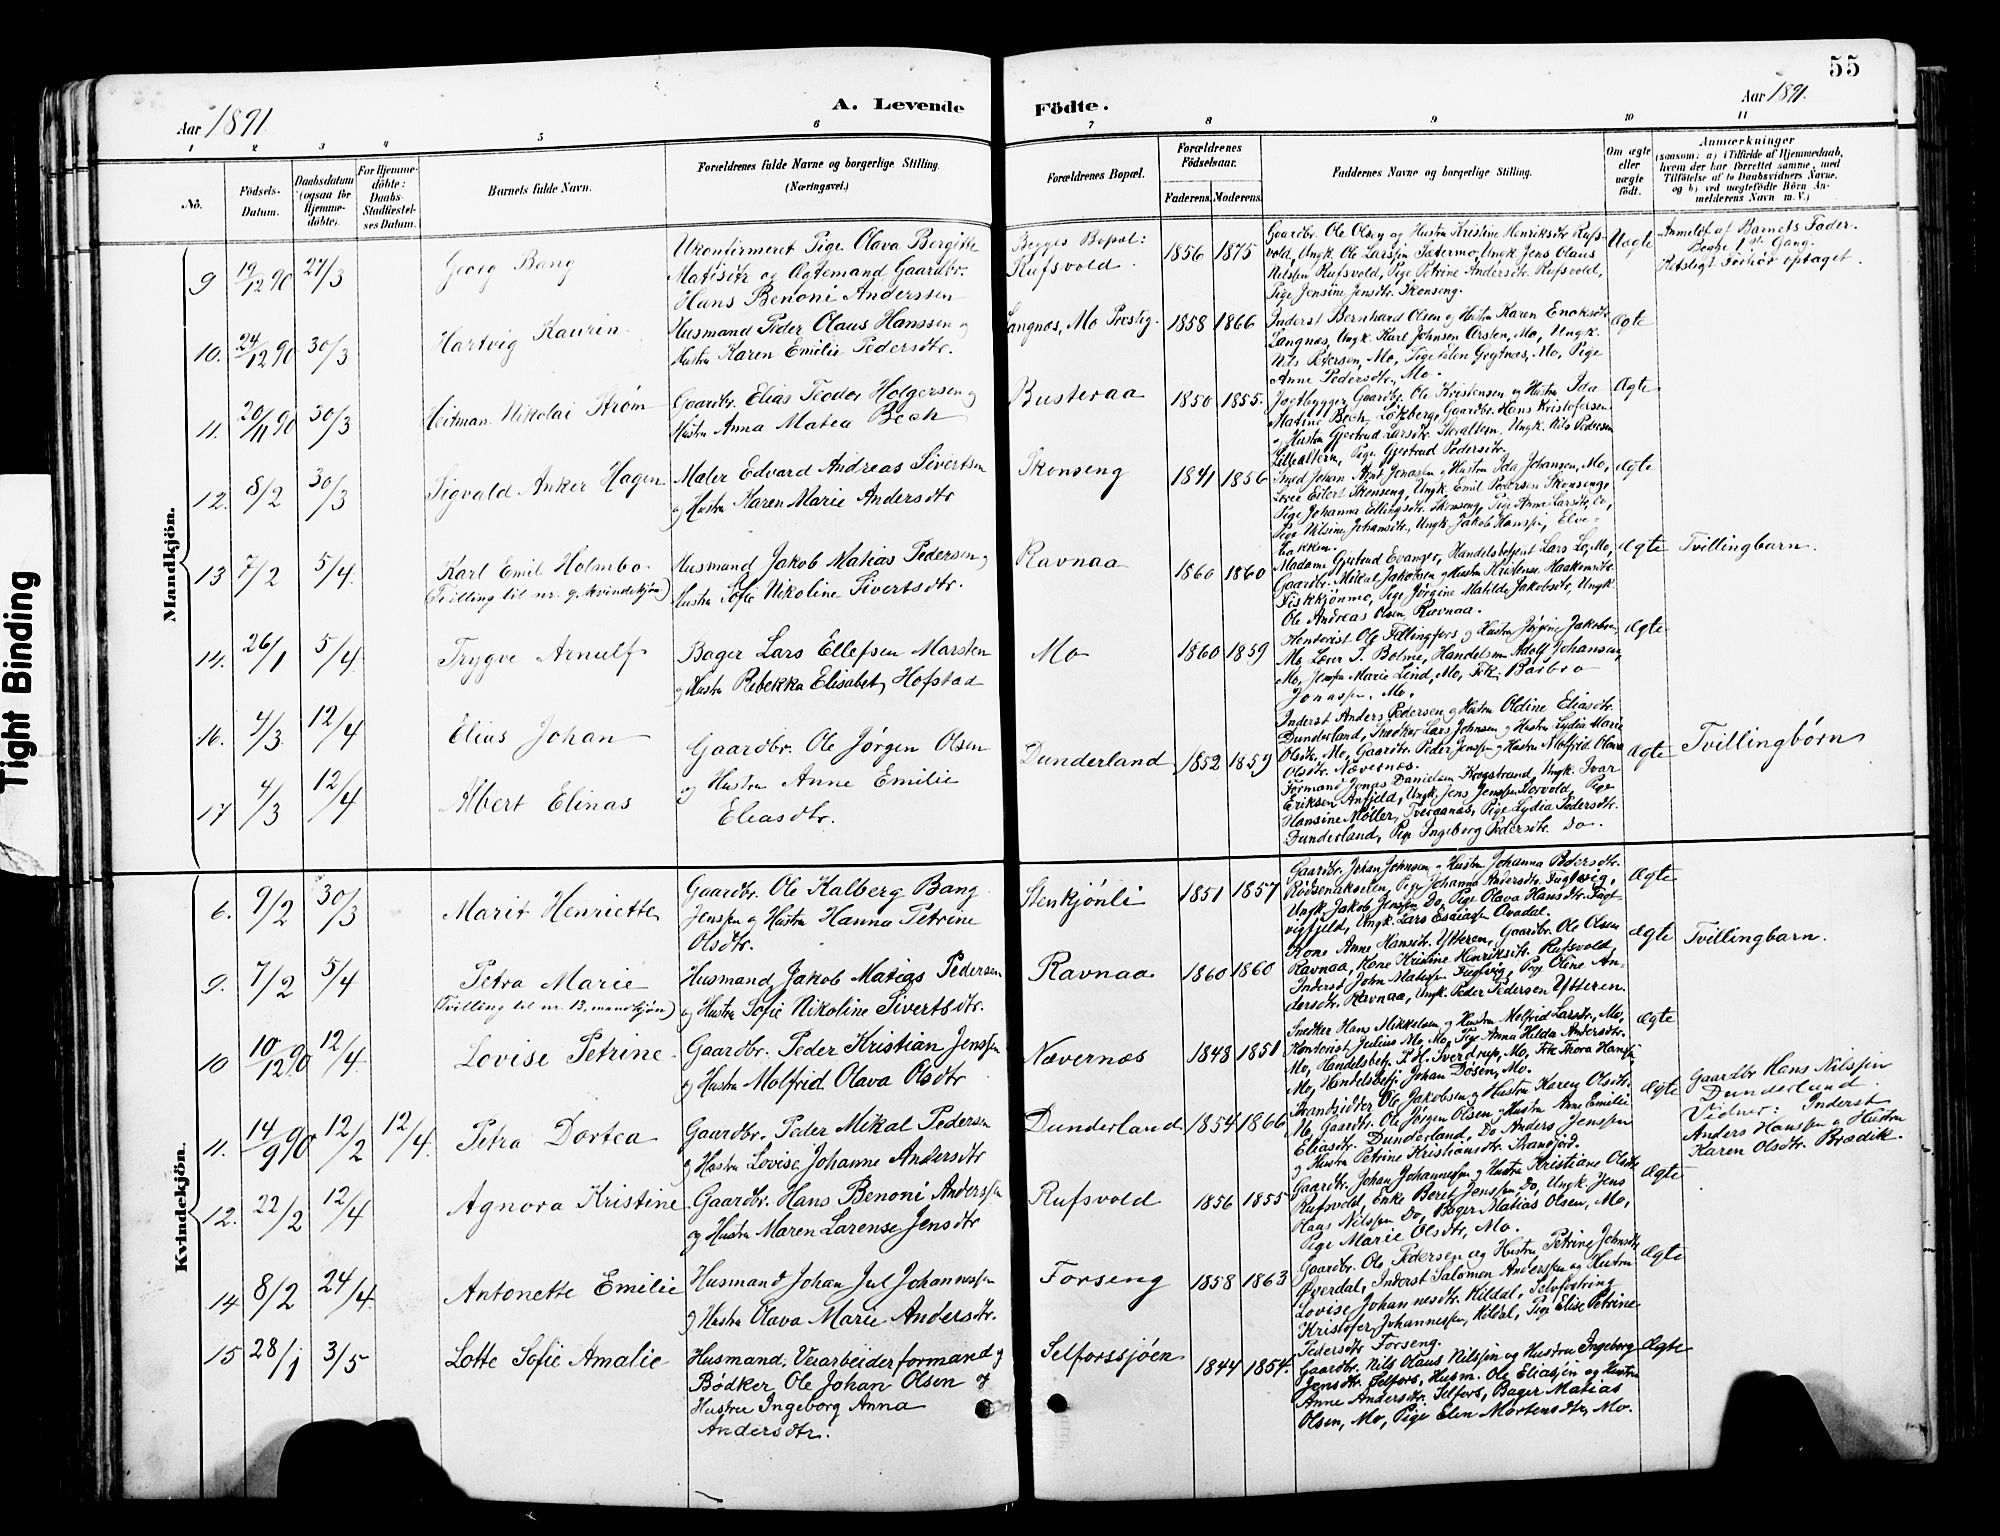 55
Aar 1891.
A. Levende
Födte.
Aar 1891.
1 2 3 4 5 6 7 8 9 10 11
No.
Födsels-
Datum.
Daabsdatum
(ogsaa for
Hjemme-
döbte).
For Hjemme-
döbte:
Daabs-
Stadfæstel-
ses Datum.
Barnets fulde Navn.
Forældrenes fulde Navne og borgerlige Stilling.
(Næringsvei.)
Forældrenes Bopæl.
Forældrenes
Födselsaar.
Faderens.
Moderens.
Faddernes Navne og borgerlige Stilling.
Om ægte
eller
uægte
födt.
Anmærkninger
(saasom: a) i Tilfælde af Hjemmedaab,
hvem der har forrettet samme, med
Tilföielse af to Daabsvidners Navne,
og b) ved uægtefödte Börn An-
melderens Navn m. V.)
Mandkjön.
9 19/12 90 27/3
Georg Bang
Ukonfirmeret Pige Olava Bergitte
Matisdtr og Ægtemand Gaardbr.
Hans Benoni Anderssen
Begges Bopæl:
Rufsvold.
1856 1875
Gaardbr. Ole Olsen og Hustru Kristine Henriksdtr Rufs-
vold, Ungk. Ole Larssen Sætermo, Ungk Jens Olaus
Nilssen Rufsvold, Pige Petrine Andersdtr. Rufsvold,
Pige Jensine Jensdtr. Skonseng.
Uægte
Anmeldt af Barnets Fader.
Begge 1ste Gang.
Retsligt Forhør optaget.
10. 24/12 90 30/3
Hartvig Kaurin
Husmand Peder Olaus Hanssen og
Hustru Karen Emilie Pedersdtr.
Langnæs, Mo Prestig.
1858 1866
Inderst Bernhard Olsen og Hustru Karen Enoksdtr
Langnæs, Ungk. Karl Johnsen Ørsten, Mo, Ungk.
Nils Petersen, Mo, Pige Elen Grytnæs, Mo, Pige
Anne Pedersdtr., Mo.
Ægte
11. 20/11 90 30/3
Heitman Nikolai Strøm
Gaardbr. Elias Teodor Holgersen og
Hustru Anna Matea Bech
Busteraa
1850 1855.
Jagtbygger, Gaardbr. Ole Kristensen og Hustru Ida
Matine Bech, Løkberg, Gaardbr. Hans Kristofersen
og Hustru Gjertrud Larsdtr. Storaltern. Ungk. Nils Pedersen
Lillealtern, Pige Gjertrud Pedersdtr.
Ægte
12. 8/2 30/3
Sigvald Anker Hagen
Maler Edvard Andreas Sivertsen
og Hustru Karen Marie Andersdtr
Skonseng
1841 1856
Smed Johan Arnt Jonassen og Hustru Ida Johansen, Mo,
Lærer Eilert Skonseng, Ungk. Emil Pedersen Skonseng,
Pige Johanna Ellingsdtr. Skonseng, Pige Anne Larsdtr, Do,
Pige Nilsine Johansdtr, Ungk Jakob Hanssen, Elve-
bakken.
Ægte
13 7/2 5/4.
Karl Emil Holmbo
(Tvilling til nr. 9, kvindekjøn)
Husmand Jakob Matias Pedersen og
Hustru Sofie Nikoline Sivertsdtr.
Ravnaa
1860 1860
Madame Gjertrud Evanger, Handelsbetjent Lars Lo, Mo,
Gaardbr. Mikal Jakobsen og Hustru Kristense Haakensdtr.
Fiskkjønmo, Pige Jørgine Matilde Jakobsdtr, Ungk.
Ole Andreas Olsen Ravnaa.
Ægte
Tvillingbarn.
14. 26/1 5/4.
Trygve Arnulf
Bager Lars Ellefsen Marsten
og Hustru Rebekka Elisabet Hofstad
Mo
1860 1859
Kontorist Ole Fellingfors og Hustru Jørgine Jakobsen,
Mo, Lærer S. Bolme, Handelsm Adolf Johansen,
Mo, Jomfru Marie Lind, Mo, Frk. Barbro
Jonassen, Mo.
Ægte
16. 4/3. 12/4
Elias Johan
Gaardbr. Ole Jørgen Olsen
og Hustru Anne Emilie
Eliasdtr.
Dunderland
1852 1859
Inderst Anders Pedersen og Hustru Oldine Eliasdtr.
Dunderland, Snedker Lars Johnsen og Hustru Lydia Marie
Olsdtr, Mo, Gaardbr. Peder Jenssen og Hustru Molfrid Olava
Olsdtr. Nævernes.
Ægte
Tvillingbørn
17 4/3 12/4
Albert Elinas
Formand Jonas Danielsen Krogstrand, Ungk. Ivar
Eriksen Anfjeld, Ungk. Jens Jenssen Storvold, Pige
Hansine Møller, Tveraanæs, Pige Lydia Pedersdtr.
Dunderland, Pige Ingeborg Pedersdtr. Do.
Kvindekjön.
6. 9/2 30/3
Marit Henriette
Gaardbr. Ole Kalberg Bang
Jenssen og Hustru Hanna Petrine
Olsdtr.
Stenkjønli
1851 1857
Gaardbr. Johan Johnsen og Hustru Johanna Pedersdtr.
Rødsenakselen, Pige Johanna Andersdtr. Fuglevig,
Ungk. Jakob Jenssen Do, Pige Olava Hansdtr. Fugl-
vigfjeld, Ungk. Lars Esaiassen Avadal.
Ægte
9. 7/2 5/4
Petra Marie
(Tvilling til nr. 13, mandkjøn)
Husmand Jakob Matias Pedersen
og Hustru Sofie Nikoline Sivertsdtr.
Ravnaa
1860 1860
Kone Anne Hansdtr. Ytteren, Gaardbr. Ole Olsen
Ravnaa, Kone Kristine Henriksdtr. Rufsvold,
Inderst John Matissen Fuglvig, Pige Oline An-
dersdtr. Ravnaa, Ungk. Peder Pedersen Ytteren.
Ægte
Tvillingbarn.
10 10/12 90 12/4.
Lovise Petrine
Gaardbr. Peder Kristian Jenssen
og Hustru Molfrid Olava Olsdtr
Nævernæs
1848 1851
Snedker Hans Mikkelsen og Hustru Molfrid Larsdtr, Mo,
Kontorist Julius Mo, Mo, Pige Anna Hilda Andersdtr.
Mo, Handelsbetj. P. H. Sverdrup, Mo, Frk Thora Hanssen
Mo, Handelsbetj. Johan Døsen, Mo.
Ægte
11. 14/9 90 12/2 12/4.
Petra Dortea
Gaardbr. Peder Mikal Pedersen
og Hustru Lovise Johanne Andersdtr
Dunderland
1854 1866
Strandsidder Ole Jakobsen og Hustru Karen Olsdtr.
Mo, Gaardbr. Ole Jørgen Olsen og Hustru Anne Emilie
Eliasdtr. Dunderland, Do Anders Jenssen
og Hustru Petrine Kristiansdtr. Strandjord.
Ægte
Gaardbr Hans Nilssen
Dunderland.
Vidner: Inderst
Anders Hanssen og Hustru
Karen Olsdtr. Brædik.
12. 22/2 12/4
Agnora Kristine
Gaardbr. Hans Benoni Anderssen
og Hustru Maren Larense Jensdtr
Rufsvold
1856 1855
Gaardbr. Johan Johannessen og Hustru Kristiane Olsdtr
Rufsvold, Enke Beret Jenssen Do, Ungk. Jens
Olaus Nilssen Do, Bager Matias Olsen, Mo,
Pige Marie Olsdtr, Mo.
Ægte
14 8/2 24/4.
Antonette Emilie
Husmand Johan Jul Johannessen
og Hustru Olava Marie Andersdtr.
Forseng
1858 1863
Gaardbr. Ole Pedersen og Hustru Petrine Johnsdtr
Øverdal, Inderst Salomon Anderssen og Hustru
Lovise Johannesdtr. Kildal, Selvfostring
Kristofer Johannessen, Kildal, Pige Elise Petrine
Pedersdtr Forseng.
Ægte
15 28/1 3/5
Lotte Sofie Amalie
Husmand, Veiarbeiderformand og
Bødker Ole Johan Olsen og
Hustru Ingeborg Anna
Andersdtr.
Selforssjøen
1844 1854.
Gaardbr. Nils Olaus Nilssen og Hustru Ingeborg
Jensdtr. Selfors, Husm. Ole Eliassen og Hustru
Anne Andersdtr. Selfors, Bager Matias
Olsen, Mo, Pige Elen Mortensdtr, Mo.
Ægte
Tight Binding